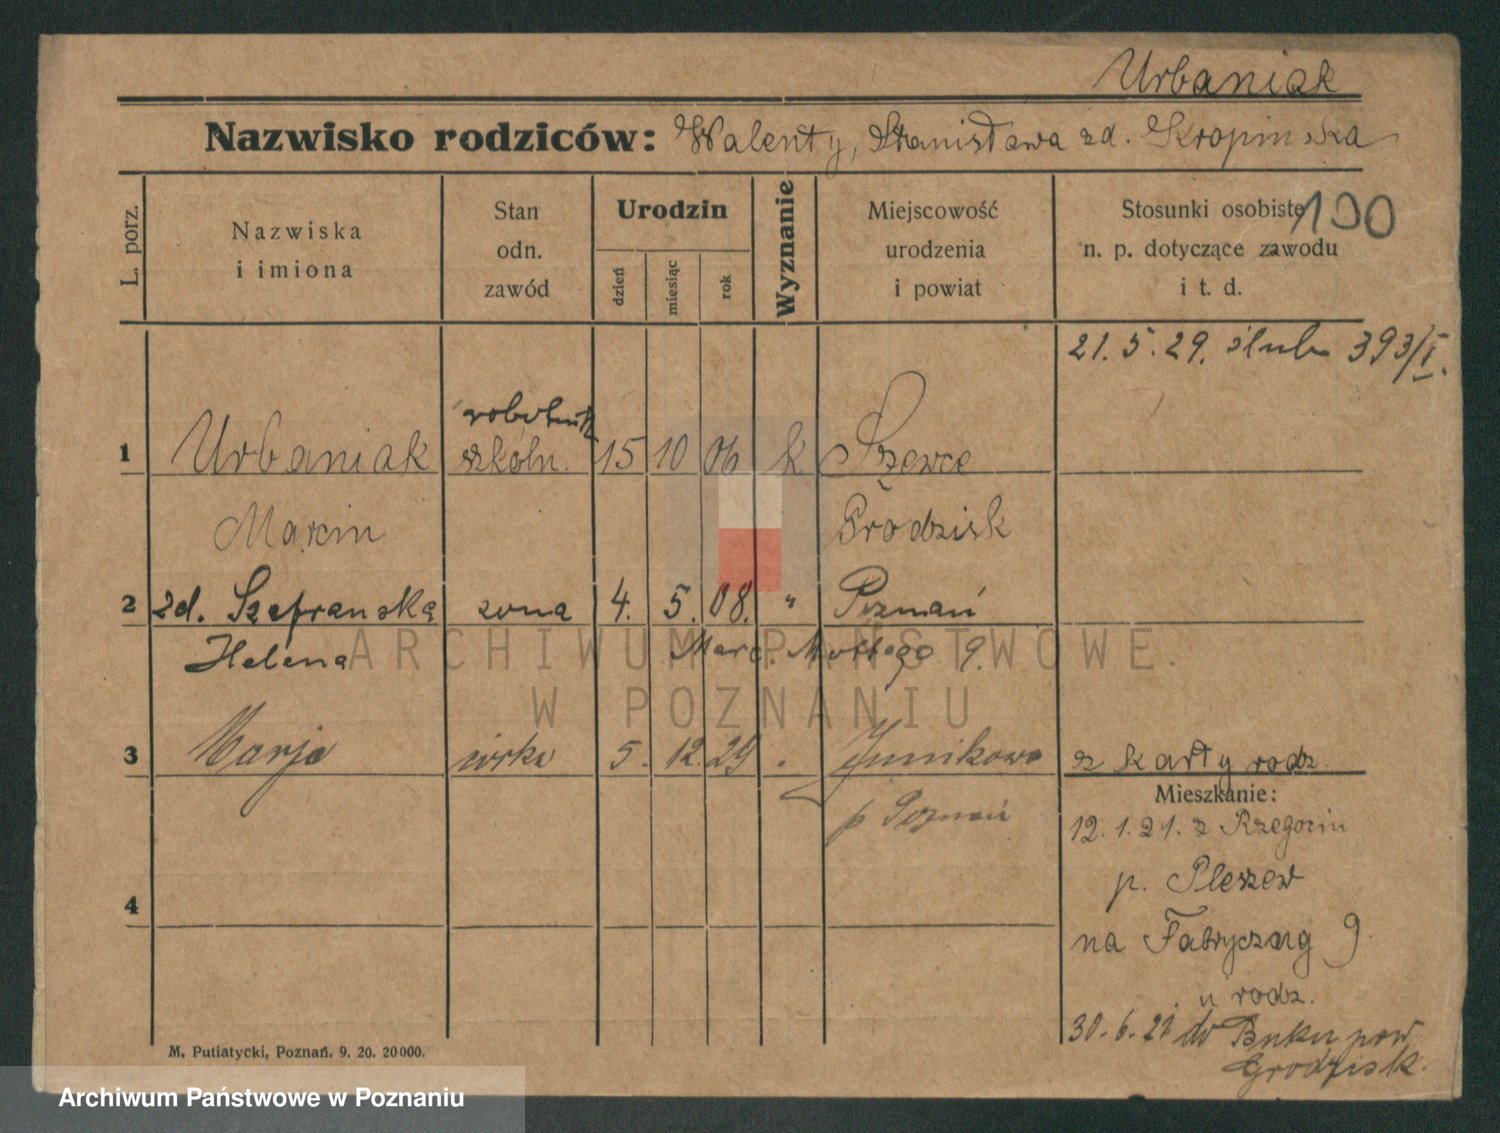 Urbaniak
Nazwisko rodziców: Walenty, Stanisława zd. Kropinska
L. porz.
Nazwiska
i imiona
Stan
odn.
zawód
Urodzin
dzień
miesiąc
rok
Wyznanie
Miejscowość
urodzenia
i powiat
Stosunki osobiste
n. p. dotyczące zawodu
i t. d.
190
21. 5. 29. ślub 393/I.
robotnik
1 Urbaniak szkoln. 15 10 06 k Szewce
Marcin Grodzisk
2 zd. Szefranską zona 4. 5. 08. " Poznań
Helena Marc. Mottego 9.
3 Marja córka 5. 12. 29 . Junikowo
z karty rodz.
p Poznań
Mieszkanie:
12. 1. 21. z Rzegocin
p. Pleszew
4
na Fabryczną 9.
u rodz.
30. 6. 21 do Buku pow
Grodzisk.
M. Putiatycki, Poznań. 9. 20. 20000.
ARCHIWUM PAŃSTWOWE
W POZNANIU
Archiwum Państwowe w Poznaniu